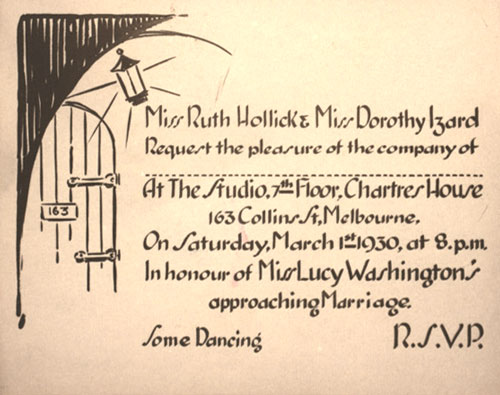 Miss Ruth Hollick & Miss Dorothy Izard
Request the pleasure of the company of
At The Studio, 7th Floor, Chartres House
163 Collins St, Melbourne.
On Saturday, March 1st 1930, at 8. p.m.
In honour of Miss Lucy Washington's
approaching Marriage.
Some Dancing R.S.V.P.
163